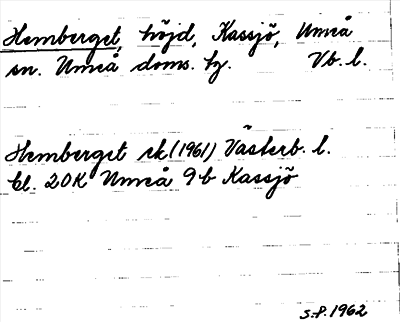 Hemberget, höjd, Kassjö, Umeå
sn. Umeå doms. hg. Vb. l.
Hemberget ek (1961) Västerb. l.
bl. 20K Umeå 9b Kassjö
S.P. 1962